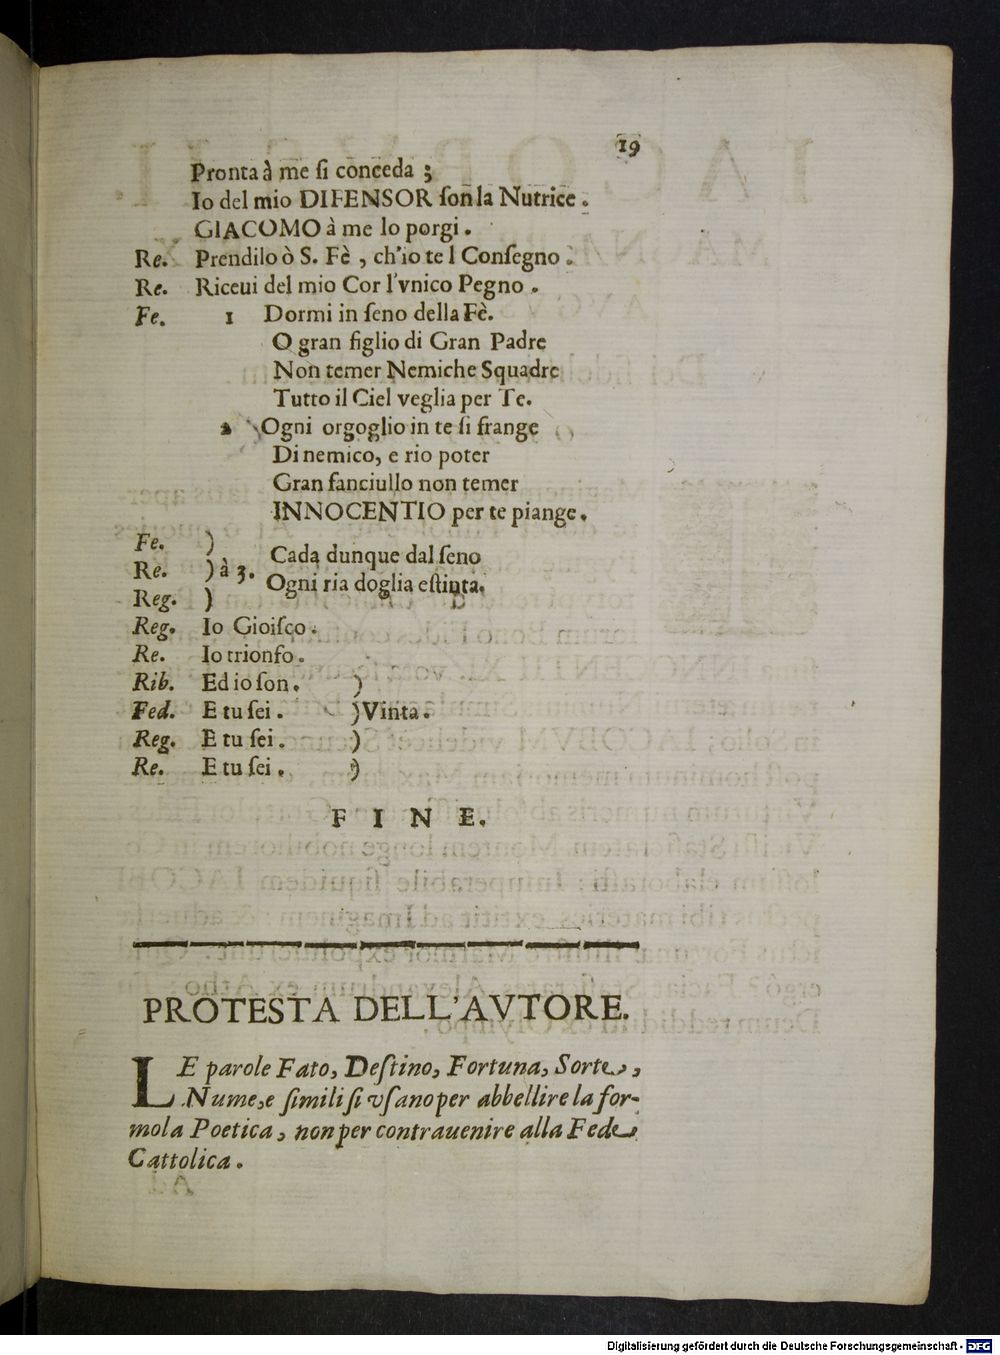 19
Pronta à me ſi conceda ;
Io del mio DIFENSOR ſon la Nutrice .
GIACOMO à me lo porgi .
Re. Prendilo ò S. Fè , ch'io te l Conſegno .
Re. Riceui del mio Cor l'vnico Pegno .
Fe. 1 Dormi in ſeno della Fè.
O gran figlio di Gran Padre
Non temer Nemiche Squadre
Tutto il Ciel veglia per Te.
2 Ogni orgoglio in te ſi frange
Di nemico, e rio poter
Gran fanciullo non temer
INNOCENTIO per te piange.
Fe. )
Re. ) à 3. Cada dunque dal ſeno
Reg. ) Ogni ria doglia eſtinta.
Reg. Io Gioiſco .
Re. Io trionfo .
Rib. Ed io ſon . )
Fed. E tu ſei . ) Vinta .
Reg. E tu ſei . )
Re. E tu ſei . )
F I N E.
PROTESTA DELL'AVTORE.
LE parole Fato, Deſtino, Fortuna, Sorte ,
Nume, e ſimili ſi vſano per abbellire la for-
mola Poetica , non per contrauenire alla Fede
Cattolica .
Digitalisierung gefördert durch die Deutsche Forschungsgemeinschaft - DFG